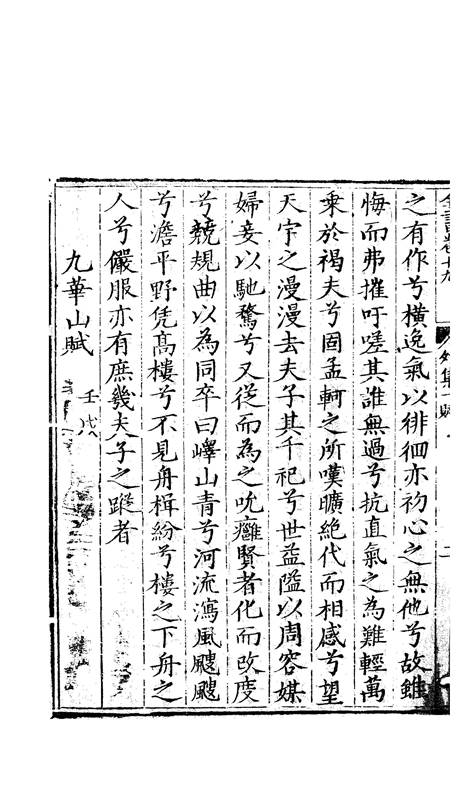 之有作兮橫逸氣以徘徊亦初心之無他兮故雖
悔而弗摧吁嗟其誰無過兮抗直氣之為難輕萬
乘於褐夫兮固孟軻之所嘆曠絶代而相感兮望
天宇之漫漫去夫子其千祀兮世益隘以周容媒
婦妾以馳騖兮又從而為之吮癰賢者化而改度
兮競規曲以為同卒曰嶧山青兮河流瀉風颼颼
兮澹平野凭髙樓兮不見舟楫紛兮樓之下舟之
人兮儼服亦有庶幾夫子之蹤者
九華山賦 壬戌